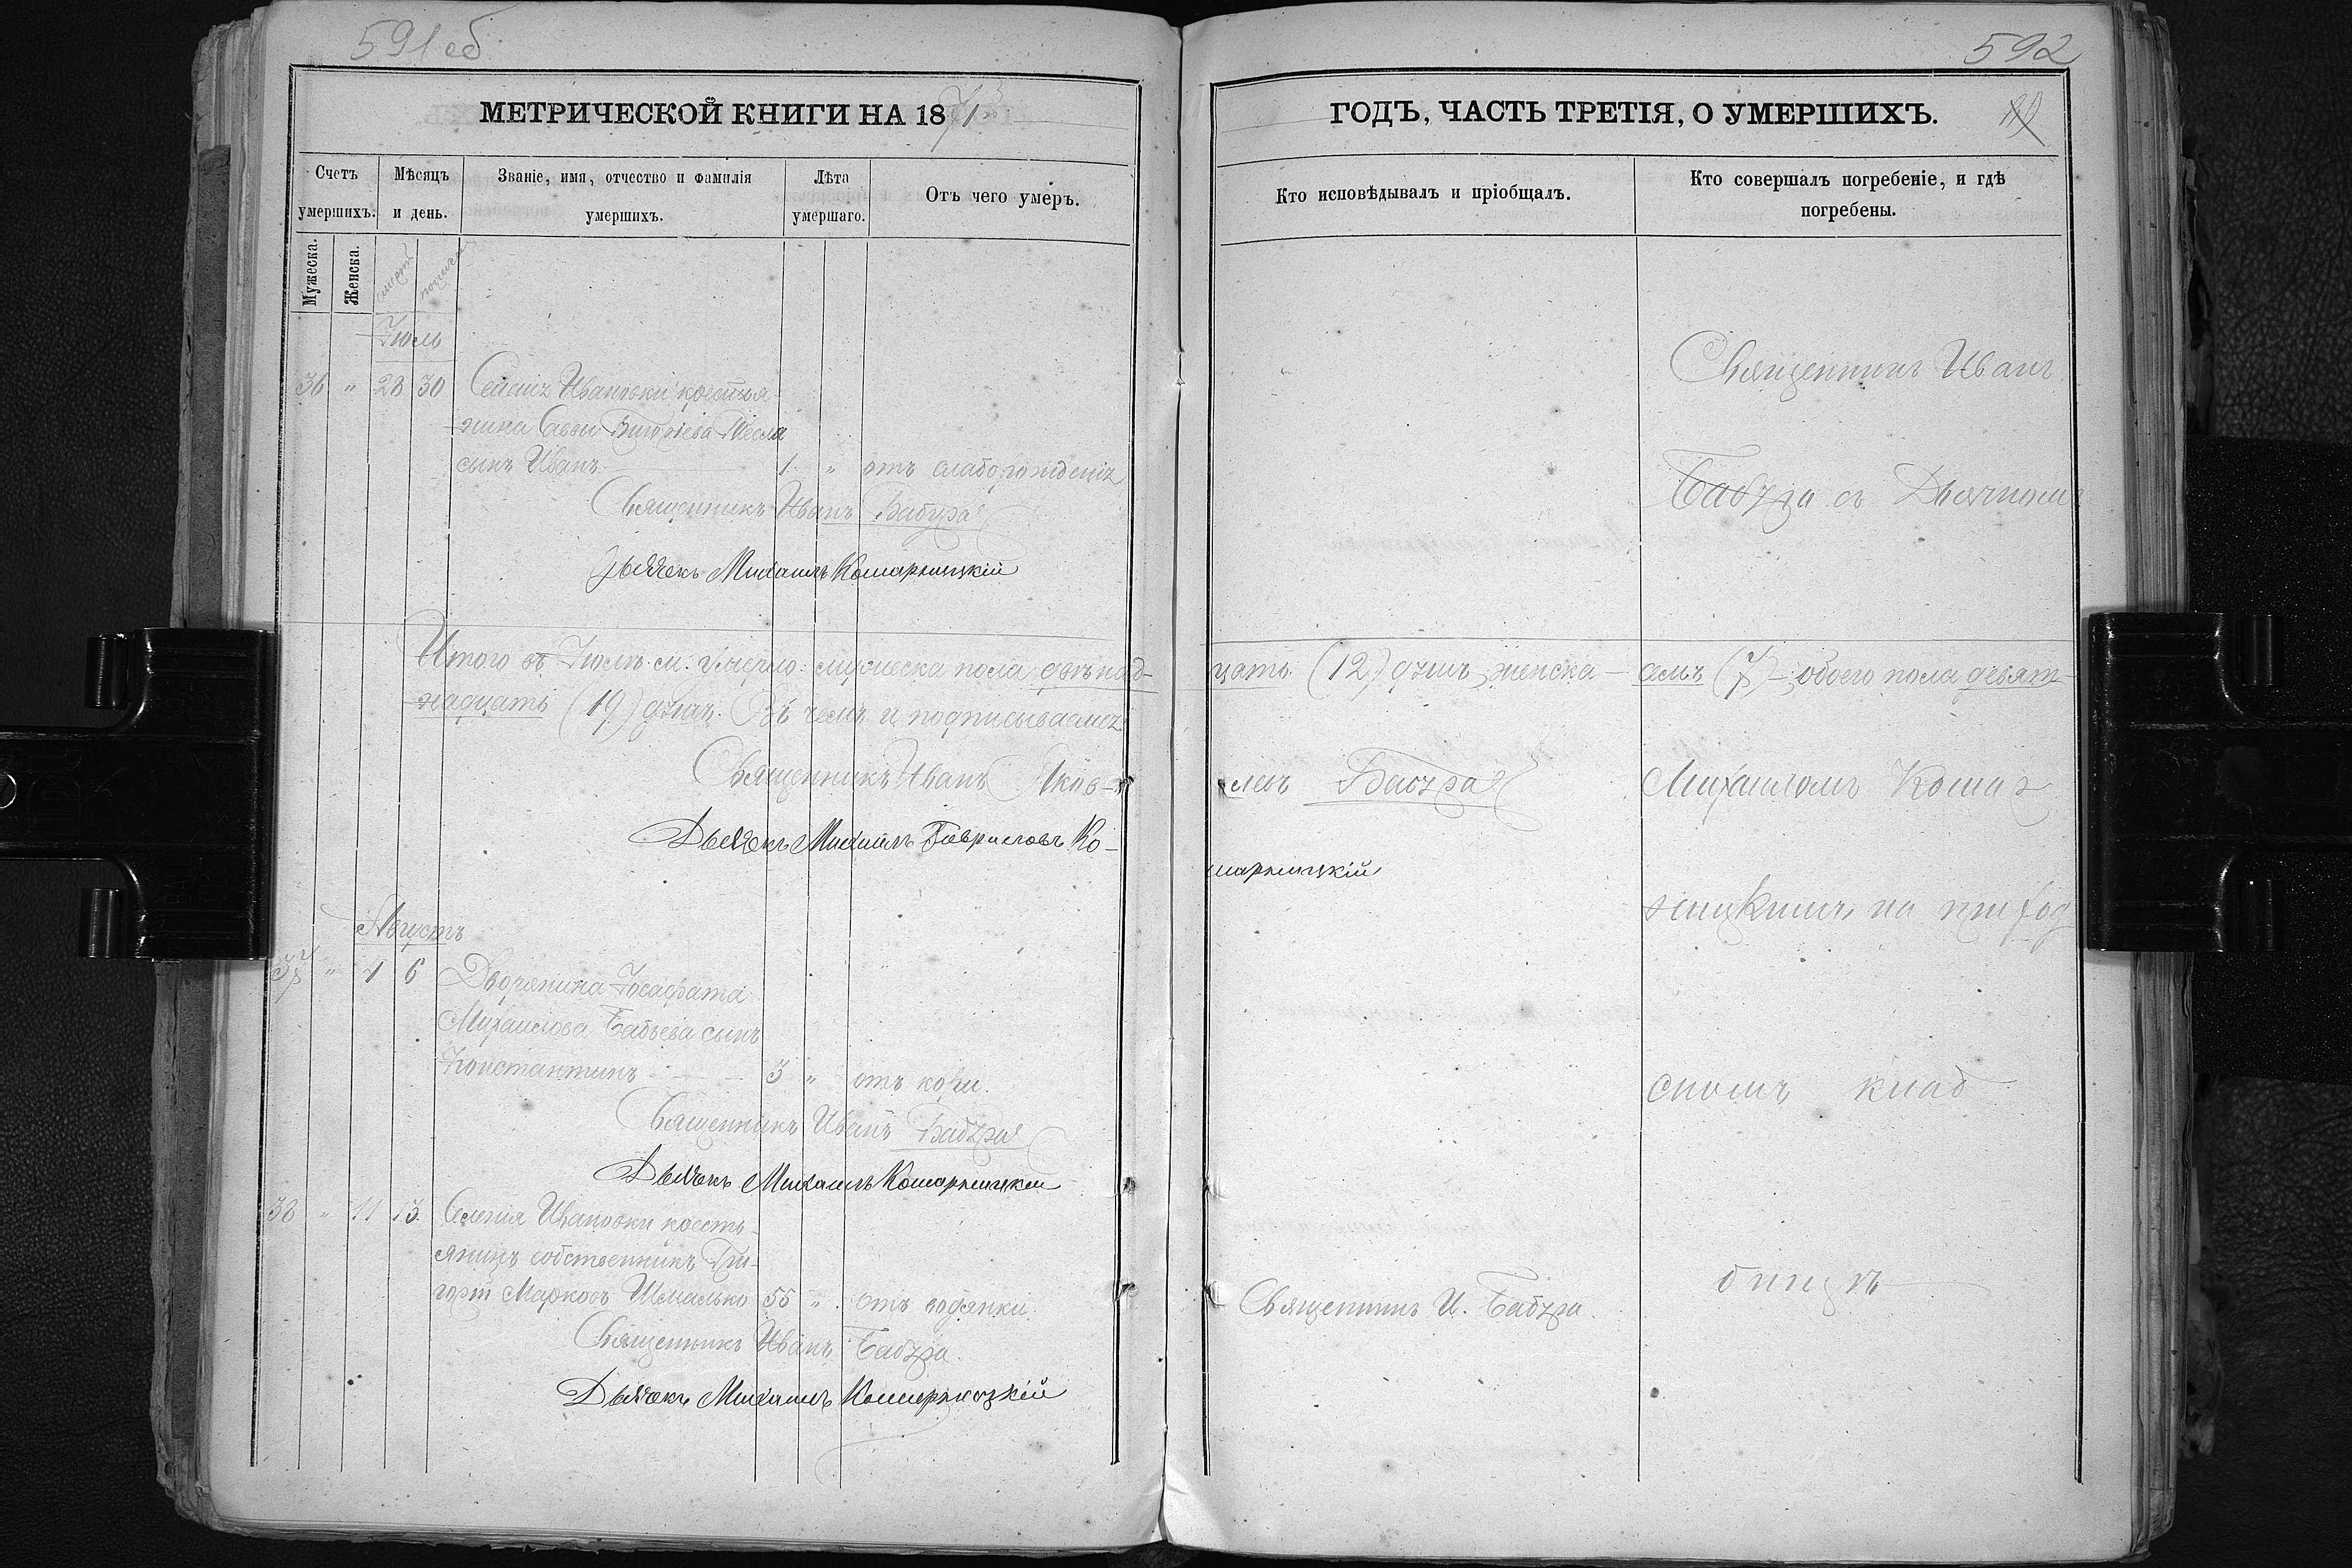 591 об
МЕТРИЧЕСКОЙ КНИГИ НА 1871й
Счетъ умершихъ.
Мѣсяцъ и день.
Званіе, имя, отчество и фамилія умершихъ.
Лѣта умершаго.
Отъ чего умеръ.
Мужеска.
Женска.
Іюль
36 " 28 30 Селенія Ивановки крестья-
нина Саввы Тесля
сынъ Иванъ 1 " отъ слаборожденія
Священникъ Иванъ Бабура
Дьячекъ Михаилъ Комарницкій
Итого въ Іюлѣ м. умерло: мужеска пола двѣнад-
надцать (19) душъ. Въ чемъ и подписываемся
Священникъ Иванъ Яков-
Дьячекъ Михаилъ Гавриловъ Ко-
Августъ
37 " 4 6 Дворянина Іосафата
Михаилова сынъ
Константинъ 3 " отъ кори.
Священникъ Иванъ Бабура
Дьячекъ Михаилъ Комарницкій
38 " 11 13 Селенія Ивановки кресть-
янинъ собственникъ Гри-
горій Марковъ 55 " отъ водянки.
Священникъ Иванъ Бабура.
Дьячекъ Михаилъ Комарницкій
592
ГОДЪ, ЧАСТЬ ТРЕТІЯ, О УМЕРШИХЪ.
Кто исповѣдывалъ и пріобщалъ.
Кто совершалъ погребеніе, и гдѣ погребены.
Священникъ Иванъ
Бабура съ Дьячкомъ
цать (12) душъ, женска — семь (7) — обоего пола девят-
левъ Бабура
Михаиломъ Комар
марницкій
ницкимъ, на приход
скомъ клад
Священникъ И. Бабура.
бищѣ